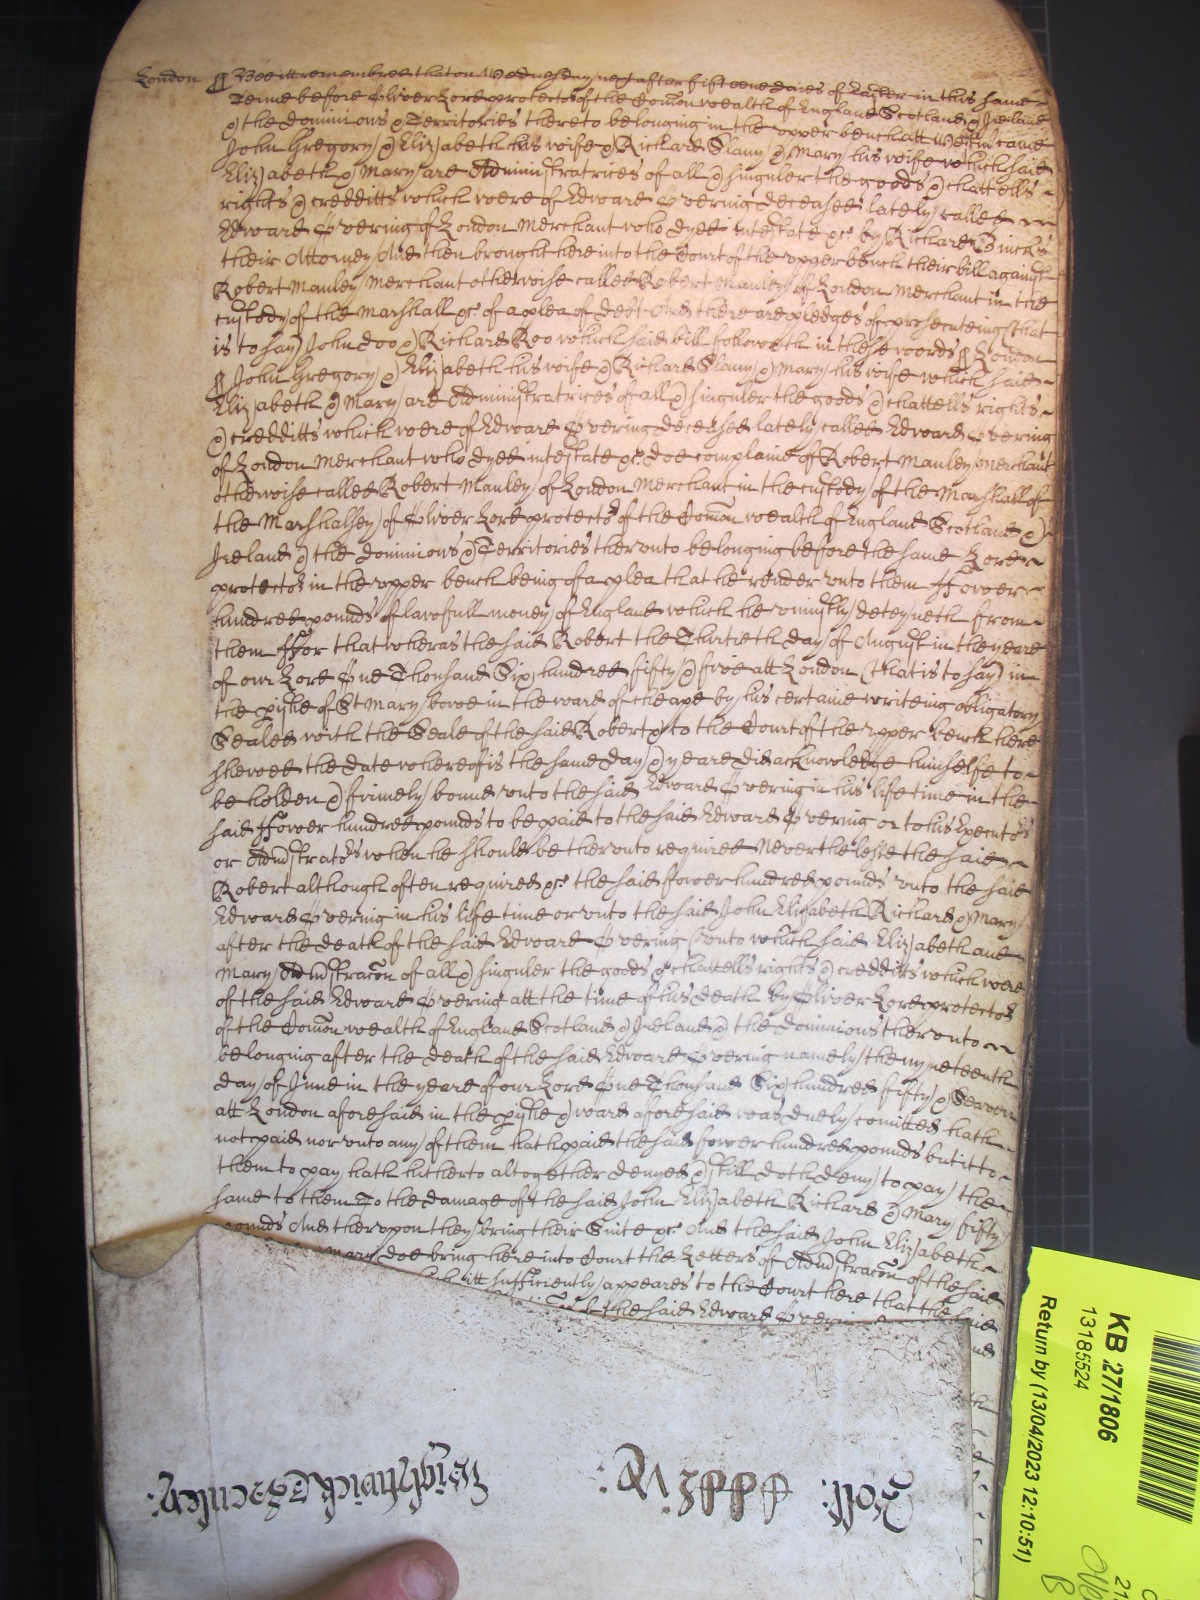 London ¶ Bee itt remembred that on Wednesday next after fifteene daies of Easter in this same
Terme before Oliver Lord protector of the Comon wealth of England Scotland & Ireland
& the dominions & Territories thereto belonging in the upper bench att Westm came
John Gregory & Elizabeth his wife & Richard Slany & Mary his wife which said
Elizabeth & Mary are Administratrices of all & singuler the goods & chattells
rights & creditts which were of Edward Overing deceased lately called
Edward Overing of London Merchant who dyed intestate &c by Richard
their Attorney And then brought here into the Court of the upper bench their bill against
Robert Manley Merchant otherwise called Robert Manley of London Merchant in the
custody of the Marshall &c of a plea of debt And there are pledges of prosecuteing (that
is to say) John Doo & Richard Roo which said bill followeth in these words ¶ London
¶ John Gregory & Elizabeth his wife & Richard Slany & Mary his wife which said
Elizabeth & Mary are Administratrices of all & singuler the goods & chattells rights
& credditts which were of Edward Overing deceased lately called Edward Overing
of London Merchant who dyed intestate &c doe complaine of Robert Manley Merchant
otherwise called Robert Manley of London Merchant in the custody of the Marshall of
the Marshalsey of Oliver Lord protector of the Comon wealth of England Scotland &
Ireland & the dominions & Territories therunto belonging before the same Lord
protector in the upper bench being of a plea that he render unto them ffower
hundred pounds of lawfull money of England which he uniustly deteyneth from
them ffor that wheras the said Robert the Thirtieth day of August in the yeare
of our Lord One Thousand Six hundred fifty & five att London (that is to say) in
the pishe of St Mary bowe in the ward of cheape by his certaine writeing obligatory
Sealed with the Seale of the said Robert & to the Court of the upper bench here
shewed the date whereof is the same day & yeare did acknowledge himselfe to
be holden & firmely bound unto the said Edward Overing in his life time in the
said ffower hundred pounds to be paid to the said Edward Overing or to his Executors
or Adminstrators when he should be therunto required Neverthelesse the said
Robert although often required &c the said fower hundred pounds unto the said
Edward Overing in his life time or unto the said John Elizabeth Richard & Mary
after the death of the said Edward Overing (unto which said Elizabeth and
Mary Adminstracon of all & singuler the goods & chattells rights & credditts which were
of the said Edward Overing att the time of his death by Oliver Lord protector
of the Comon wealth of England Scotland & Ireland & the dominions therunto
belonging after the death of the said Edward Overing namely the nyneteenth
day of June in the yeare of our Lord One Thousand Six hundred fifty & Seaven
att London aforesaid in the pishe & ward aforesaid was duely comitted hath
not paid nor unto any of them hath paid the said fower hundred pounds but itt to
them to pay hath hitherto altogether denyed & still doth deny to pay the
same to them To the damage of the said John Elizabeth Richard & Mary fifty
pounds And therupon they bring their Suite &c And the said John Elizabeth
Mary doe bring here into Court the Letters of Adminstracon of the said
itt sufficiently appeares to the Court here that the said
the said Edward Overing
Rott:
KB 27/1806
13185524
Return by (13/04/2023 12:10:51)